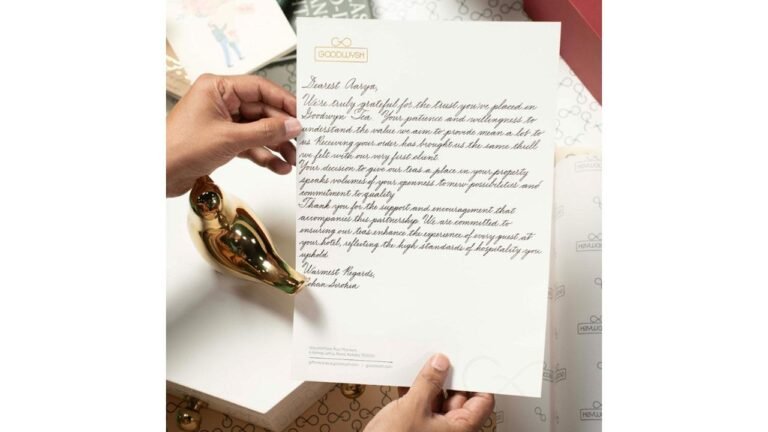 GOODWYN
Dearest Aarya,
We're truly grateful for the trust you've placed in
Goodwyn Tea. Your patience and willingness to
understand the value we aim to provide mean a lot to
us. Receiving your order has brought us the same thrill
we felt with our very first client.
Your decision to give our teas a place in your property
speaks volumes of your openness to new possibilities and
commitment to quality.
Thank you for the support and encouragement that
accompanies this partnership. We are committed to
ensuring our teas enhance the experience of every guest at
your hotel, reflecting the high standards of hospitality you
uphold.
Warmest Regards,